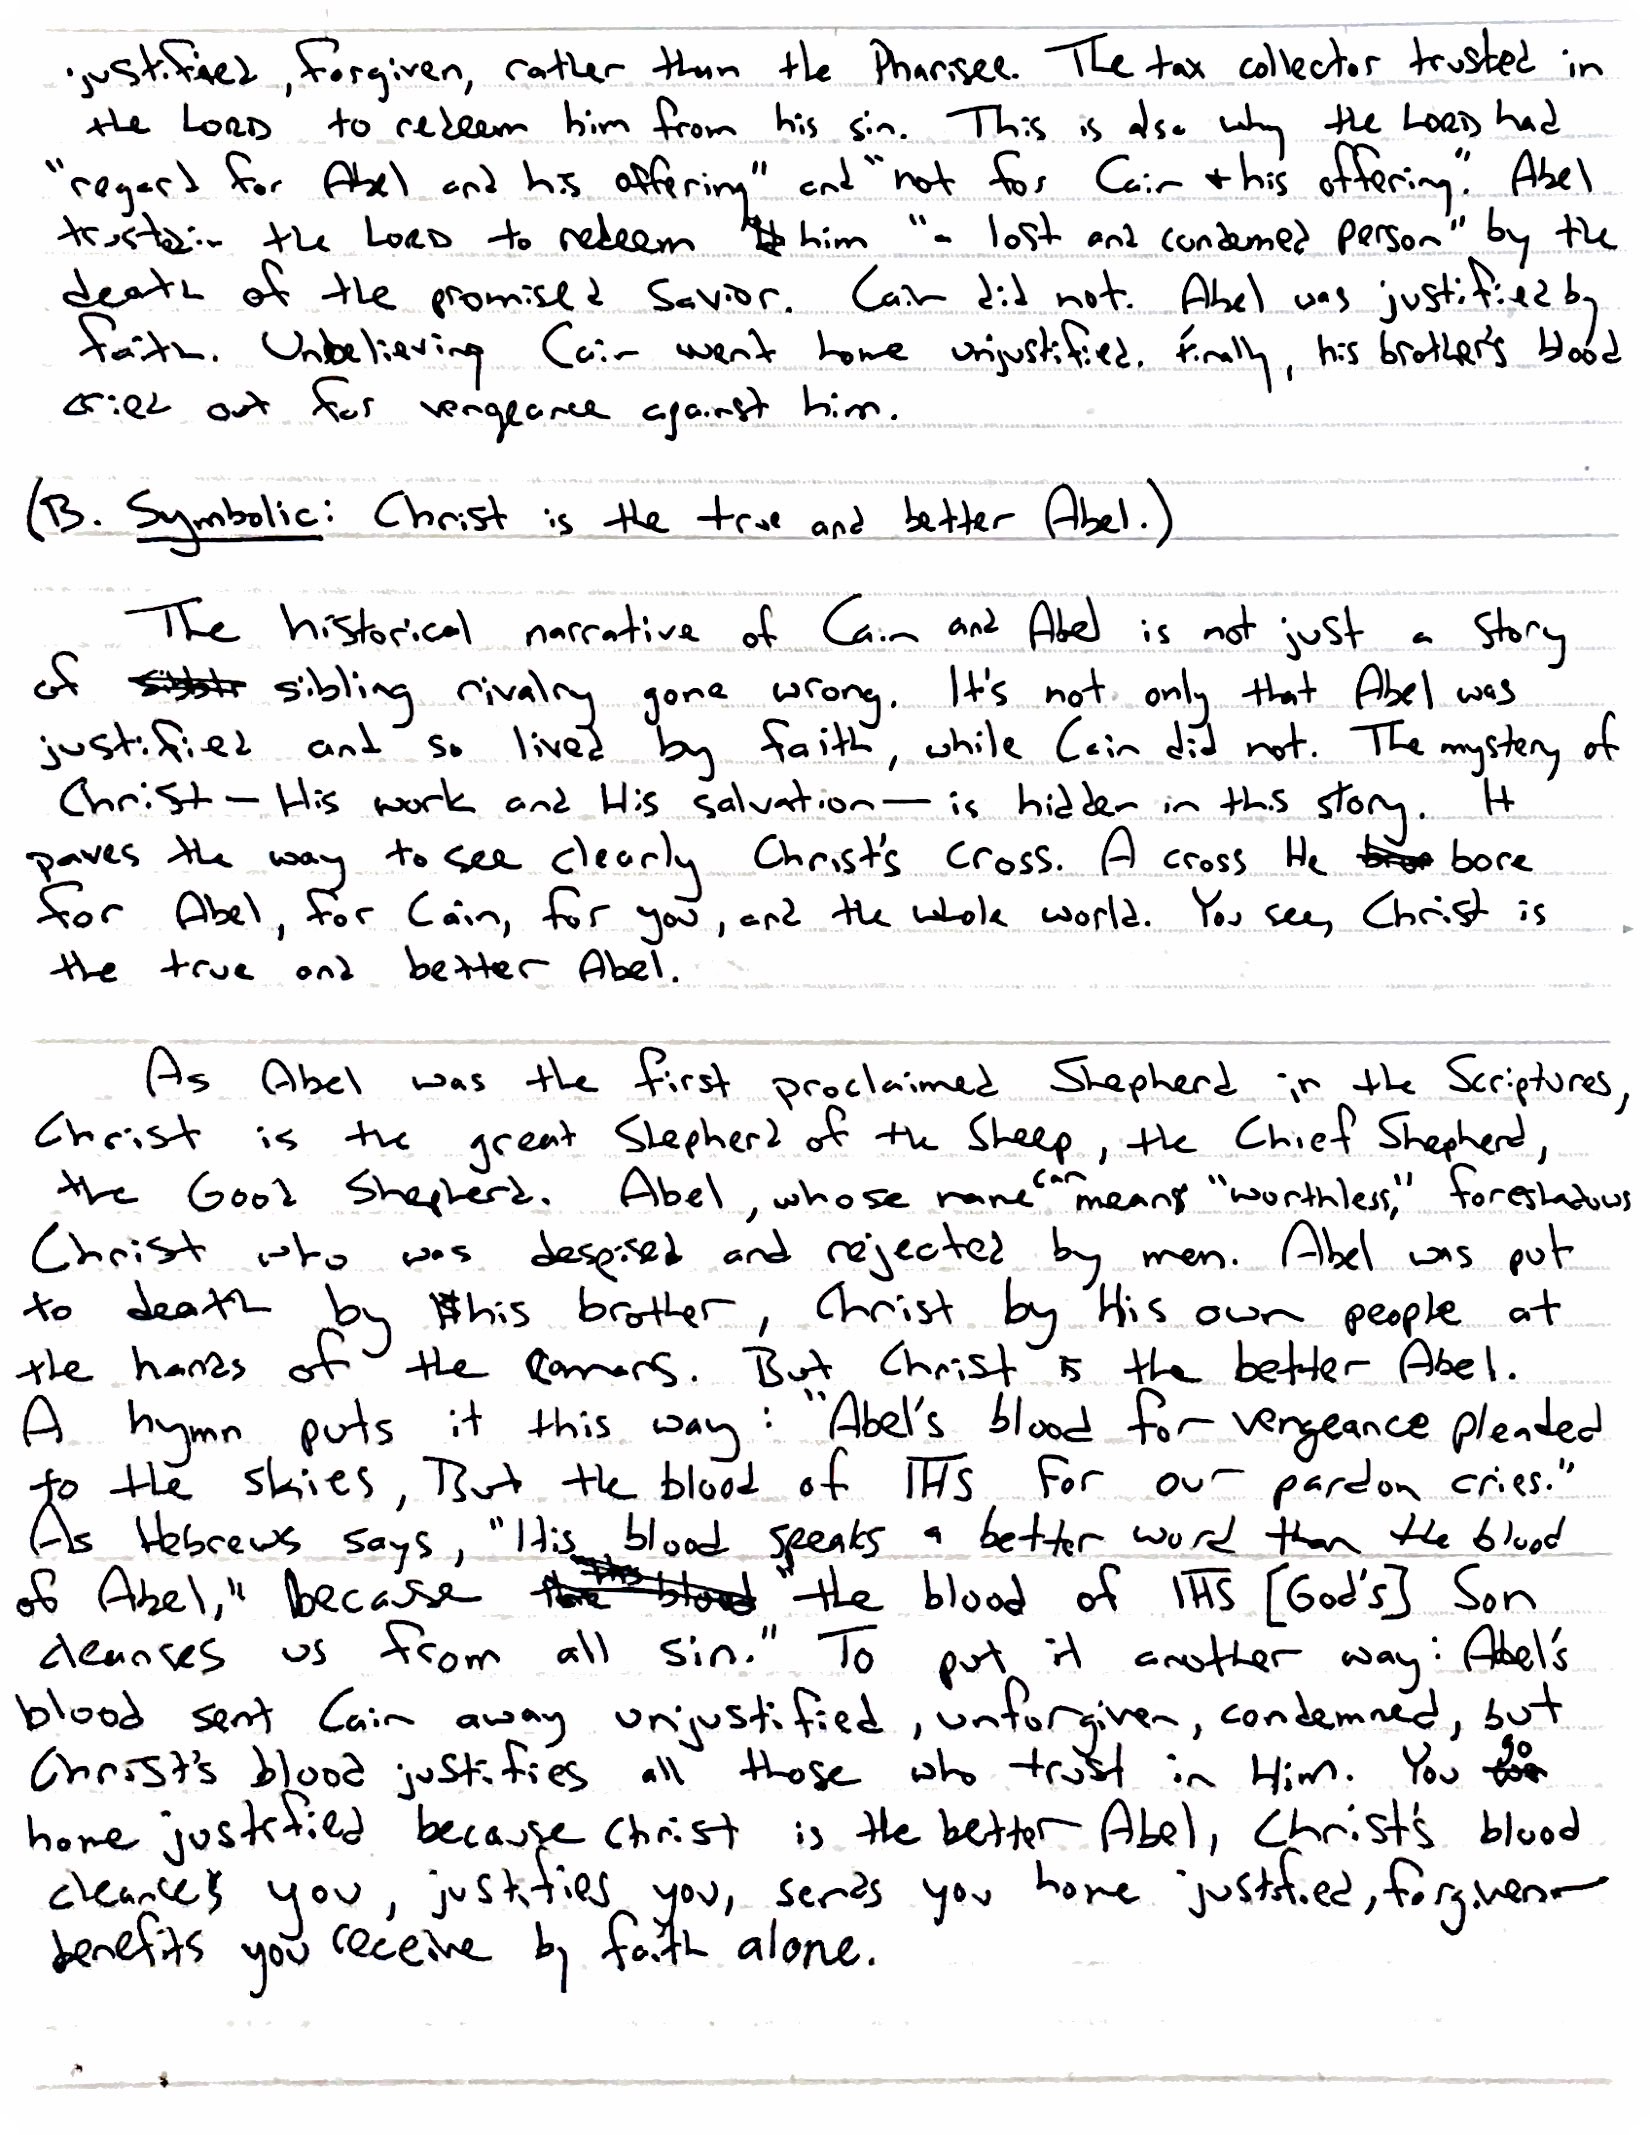 justified, forgiven, rather than the Pharisee. The tax collector trusted in
the LORD to redeem him from his sin. This is also why the LORD had
"regard for Abel and his offering" and "not for Cain + his offering". Abel
trusted in the LORD to redeem him "a lost and condemed person" by the
death of the promised Savior. Cain did not. Abel was justified by
faith. Unbelieving Cain went home unjustified. Finally, his brother's blood
cried out for vengeance against him.
(B. Symbolic: Christ is the true and better Abel.)
The historical narrative of Cain and Abel is not just a story
of sibling rivalry gone wrong. It's not only that Abel was
justified and so lived by faith, while Cain did not. The mystery of
Christ — His work and His salvation — is hidden in this story. It
paves the way to see clearly Christ's cross. A cross He bore
for Abel, for Cain, for you, and the whole world. You see, Christ is
the true and better Abel.
As Abel was the first proclaimed Shepherd in the Scriptures,
Christ is the great Shepherd of the Sheep, the Chief Shepherd,
the Good Shepherd. Abel, whose name can mean "worthless," foreshadows
Christ who was despised and rejected by men. Abel was put
to death by his brother, Christ by His own people at
the hands of the Romans. But Christ is the better Abel.
A hymn puts it this way: "Abel's blood for vengeance pleaded
to the skies, But the blood of IHS For our pardon cries."
As Hebrews says, "His blood speaks a better word than the blood
of Abel," because "the blood of IHS [God's] Son
cleanses us from all sin." To put it another way: Abel's
blood sent Cain away unjustified, unforgiven, condemned, but
Christ's blood justifies all those who trust in Him. You go
home justified because Christ is the better Abel, Christ's blood
cleanses you, justifies you, sends you home justified, forgiven —
benefits you receive by faith alone.